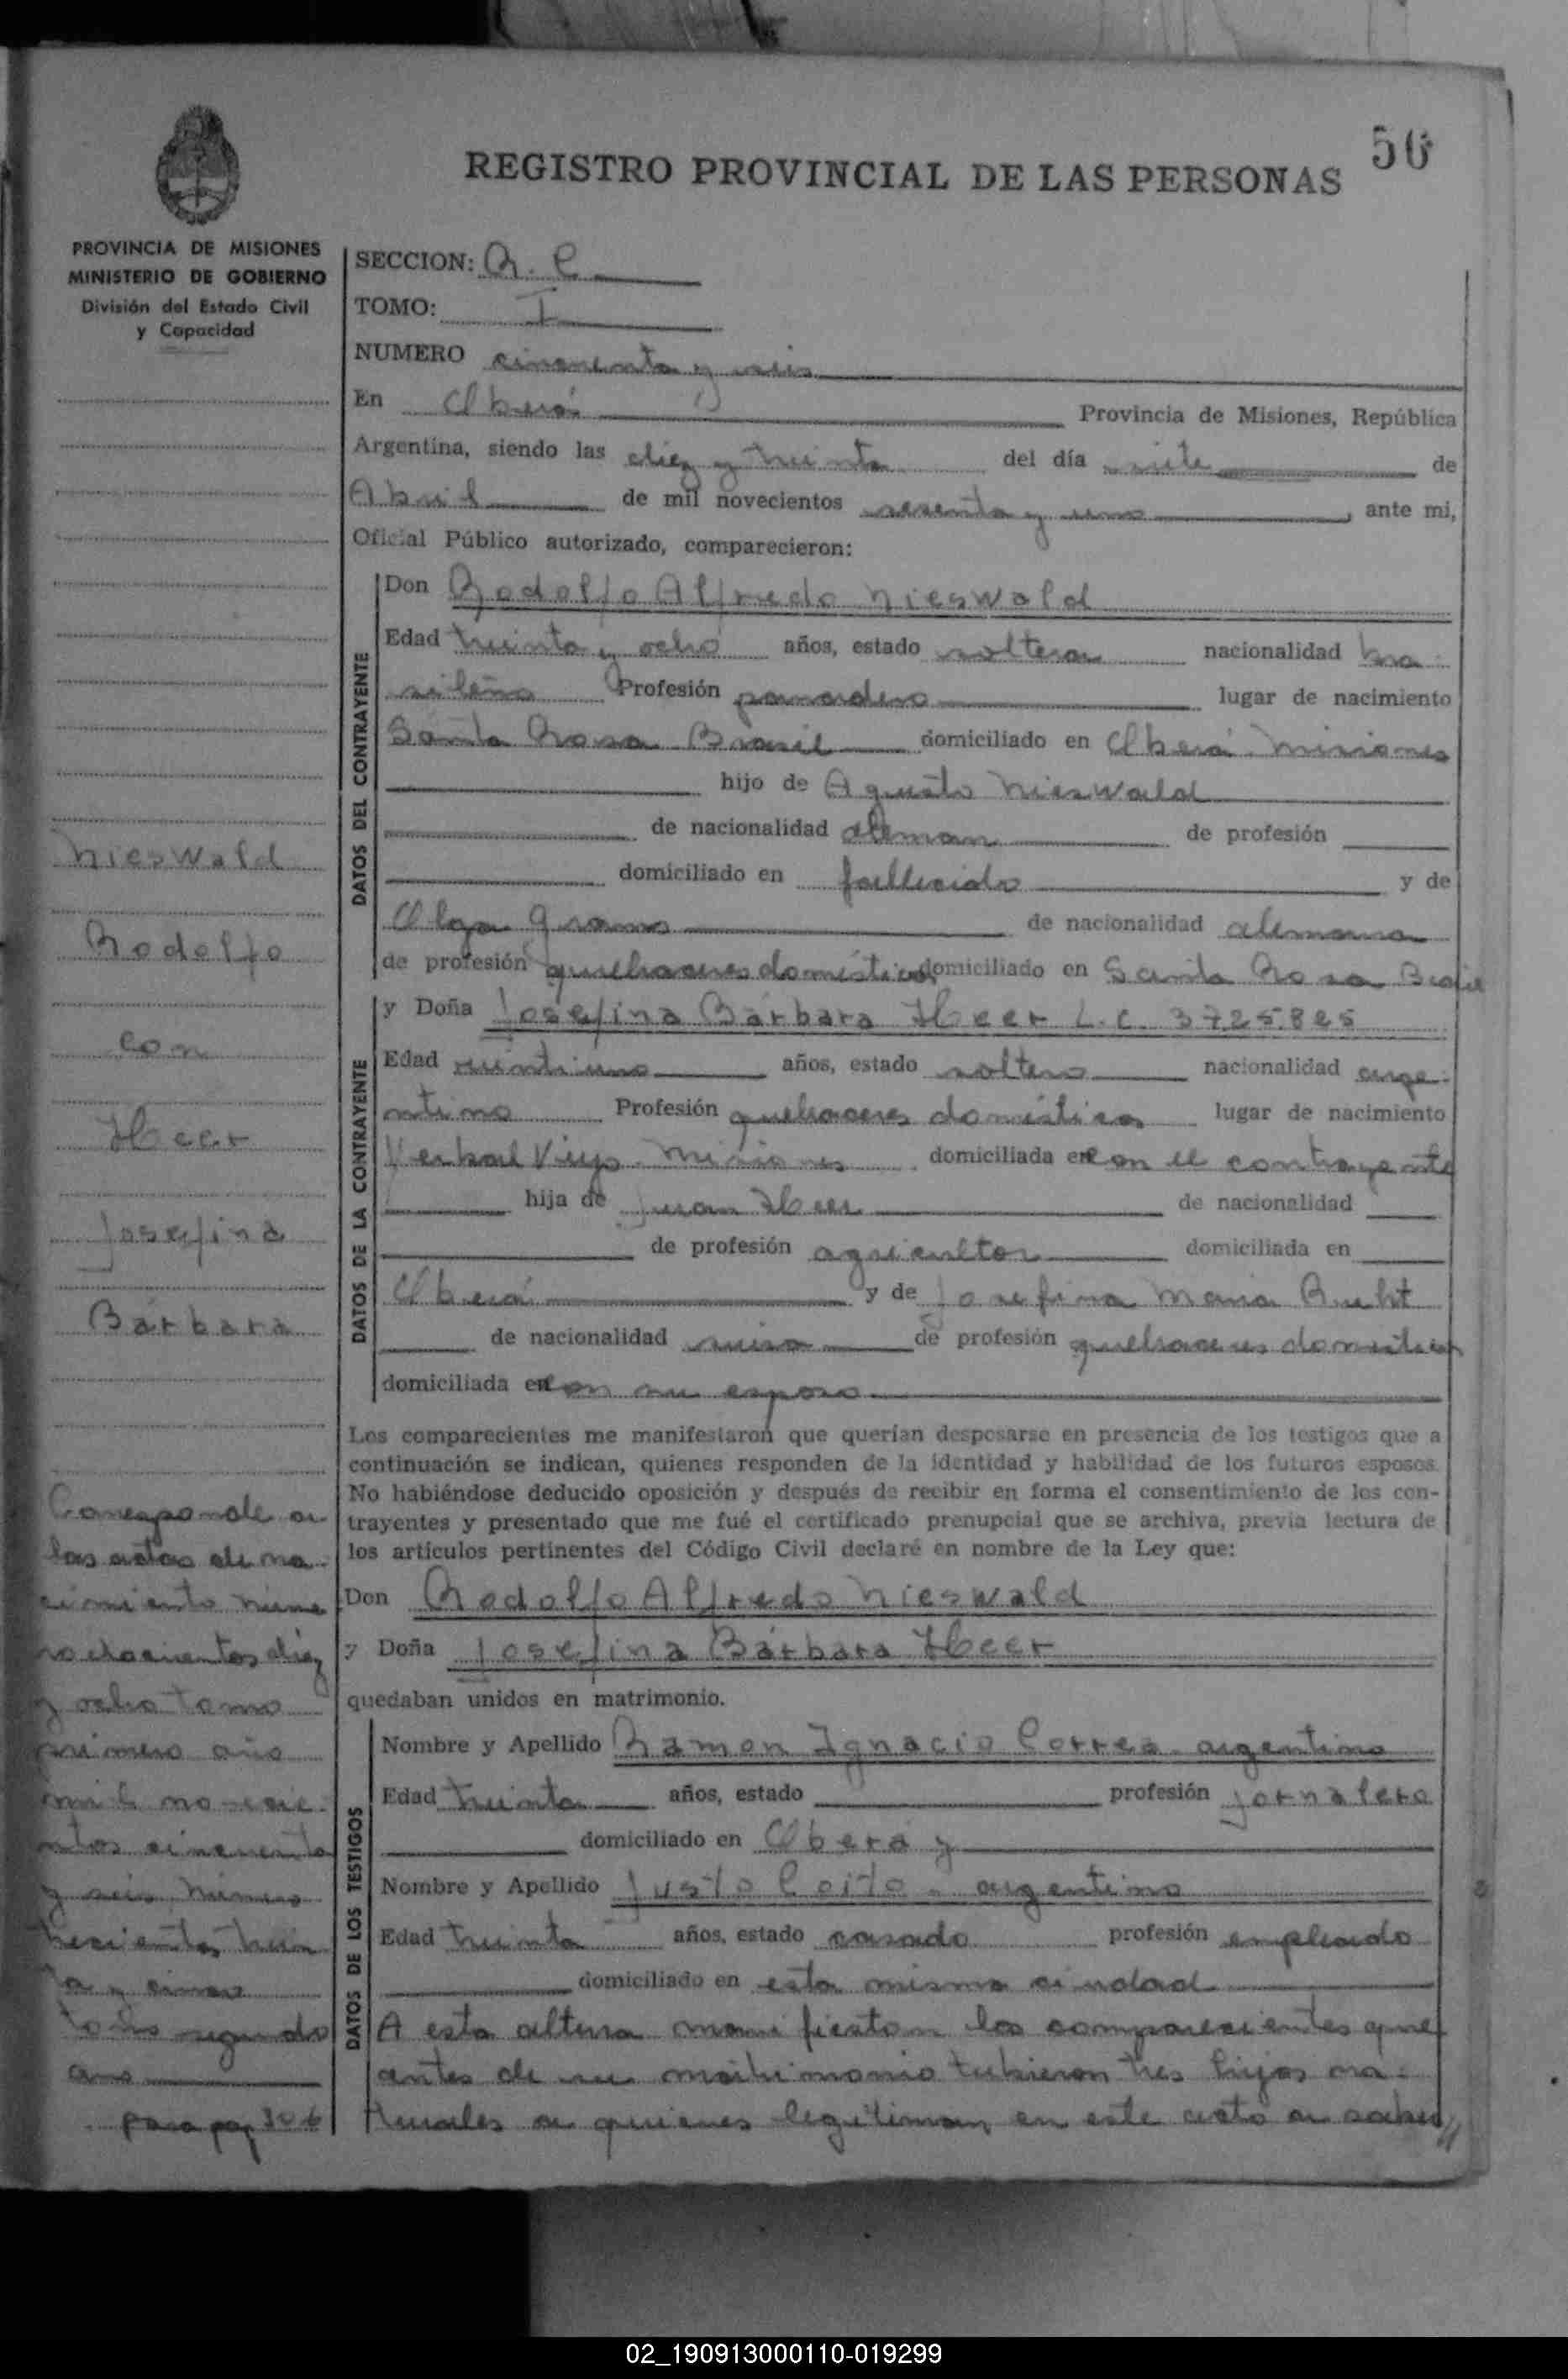 56
REGISTRO PROVINCIAL DE LAS PERSONAS
PROVINCIA DE MISIONES
MINISTERIO DE GOBIERNO
División del Estado Civil
y Capacidad
Nieswald
Rodolfo
con
Heer
Josefina
Bárbara
Corresponde a
las actas de na-
cimiento núme
ro doscientos diez
y ocho tomo
primero año
mil no-vecie-
ntos cincuenta
y seis, número
trescientos trein
ta y cinco
tomo segundo
año
pasa pag 306
SECCION: R. C
TOMO: I
NUMERO cincuenta y seis
En Oberá Provincia de Misiones, República
Argentina, siendo las diez y treinta del día siete de
Abril de mil novecientos sesenta y uno, ante mi,
Oficial Público autorizado, comparecieron:
DATOS DEL CONTRAYENTE
Don Rodolfo Alfredo Nieswald
Edad treinta y ocho años, estado soltero nacionalidad bra-
sileño Profesión panadero lugar de nacimiento
Santa Rosa Brasil domiciliado en Oberá Misiones
hijo de Agusto Nieswald
de nacionalidad aleman de profesión
domiciliado en fallecido y de
Olga Gramo de nacionalidad alemana
de profesión quehaceres domésticos domiciliado en Santa Rosa Brasil
DATOS DE LA CONTRAYENTE
y Doña Josefina Bárbara Heer L.C. 3725.825
Edad años, estado soltera nacionalidad arge-
ntina Profesión quehaceres domésticos lugar de nacimiento
Yerbal Viejo Misiones domiciliada en con el contrayente
hija de Juan Heer de nacionalidad
de profesión agricultor domiciliada en
Oberá y de Josefina Maria
de nacionalidad suiza de profesión quehaceres domésticos
domiciliada en con su esposo
Los comparecientes me manifestaron que querían desposarse en presencia de los testigos que a
continuación se indican, quienes responden de la identidad y habilidad de los futuros esposos.
No habiéndose deducido oposición y después de recibir en forma el consentimiento de los con-
trayentes y presentado que me fué el certificado prenupcial que se archiva, previa lectura de
los artículos pertinentes del Código Civil declaré en nombre de la Ley que:
Don Rodolfo Alfredo Nieswald
y Doña Josefina Bárbara Heer
quedaban unidos en matrimonio.
DATOS DE LOS TESTIGOS
Nombre y Apellido Ramon Ignacio Correa argentino
Edad treinta años, estado profesión jornalero
domiciliado en Oberá y
Nombre y Apellido Justo Coito - argentino
Edad treinta años, estado casado profesión empleado
domiciliado en esta misma ciudad
A esta altura manifiestan los comparecientes que
antes de su matrimonio tubieron tres hijos na-
turales a quienes legitiman en este acto a saber//
02_190913000110-019299